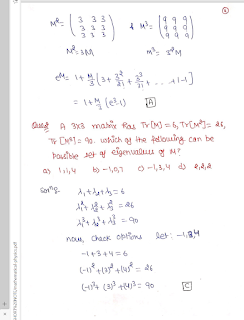 M² = (3 3 3 / 3 3 3 / 3 3 3) & M³ = (9 9 9 / 9 9 9 / 9 9 9)
M² = 3M M³ = 3²M
e^M = 1 + M/3 (3 + 3²/2! + 3³/3! + ... +1-1)
= 1 + M/3 (e³-1) [A]
A 3x3 matrix has Tr[M] = 6, Tr[M²] = 26,
Tr[M³] = 90. which of the following can be
possible set of eigenvalues of M?
a) 1,1,4 b) -1,0,7 c) -1,3,4 d) 2,2,2
λ₁+λ₂+λ₃ = 6
λ₁²+λ₂²+λ₃² = 26
λ₁³+λ₂³+λ₃³ = 90
now, check options let: -1,3,4
-1+3+4 = 6
(-1)²+(3)²+(4)² = 26
(-1)³+(3)³+(4)³ = 90 [C]